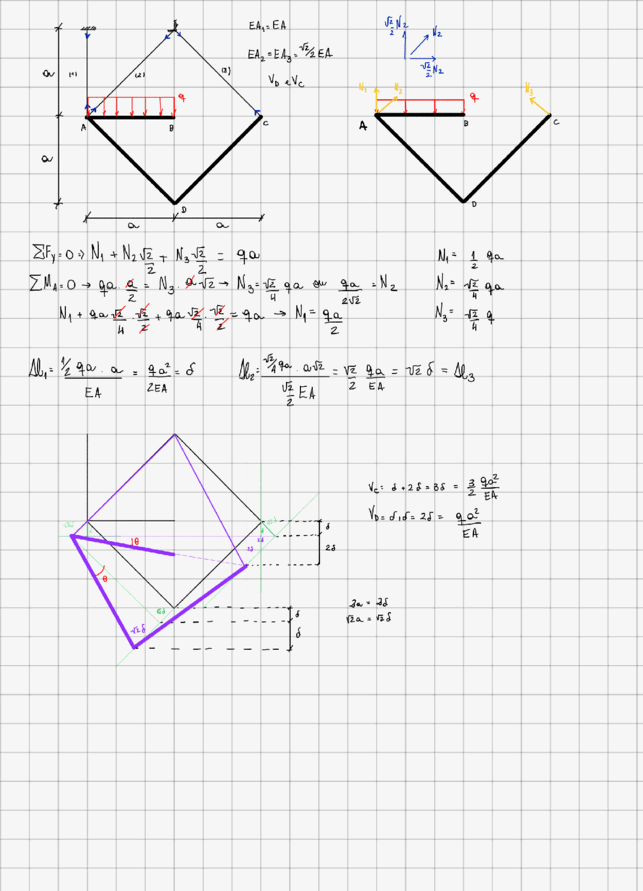 EA₁ = EA
EA₂ = EA₃ = √2/2 EA
V_D e V_C
a
a
a
a
(1)
(2)
(3)
q
A
B
C
D
√2/2 N₂
N₂
√2/2 N₂
N₁
N₂
N₃
q
A
B
C
D
ΣFy = 0 → N₁ + N₂ √2/2 + N₃ √2/2 = qa
ΣM_A = 0 → qa · a/2 = N₃ · a√2 → N₃ = √2/4 qa ou qa/2√2 = N₂
N₁ + qa √2/4 · √2/2 + qa √2/4 · √2/2 = qa → N₁ = qa/2
N₁ = 1/2 qa
N₂ = √2/4 qa
N₃ = √2/4 q
Δl₁ = 1/2 qa · a / EA = qa²/2EA = δ
Δl₂ = √2/4 qa · a√2 / √2/2 EA = √2/2 qa/EA = √2 δ = Δl₃
V_C = δ + 2δ = 3δ = 3/2 qa²/EA
V_D = δ + δ = 2δ = qa²/EA
θ
θ
√2δ
δ
2δ
δ
δ
2a = 2δ
√2a = √2δ